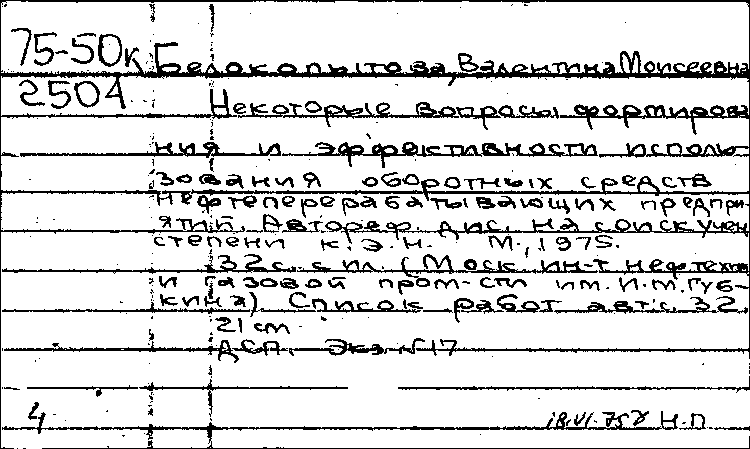 75-50к Белокопытова, Валентина Моисеевна
2504 Некоторые вопросы формирова
ния и эффективности исполь-
зования оборотных средств
нефтеперерабатывающих предпри-
ятий. Автореф. дис. на соиск учен
степени к.э.н. М., 1975.
32 с. с ил. (Моск. ин-т нефтехим
и газовой пром-сти им. И.М. Губ-
кина). Список работ авт: с. 32
21 см
ДСП. Экз. №17
4 18.VI.75г Н-П